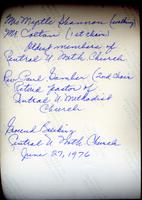 Mrs Myrtle Shannon (walking)
Mr Coston (1st chair)
Oldest members of
Central U. Meth Church
Rev. Paul Gamber (2nd chair
Retired pastor of
Central U. Methodist
Church
Ground Breaking
Central U. Meth Church
June 27, 1976